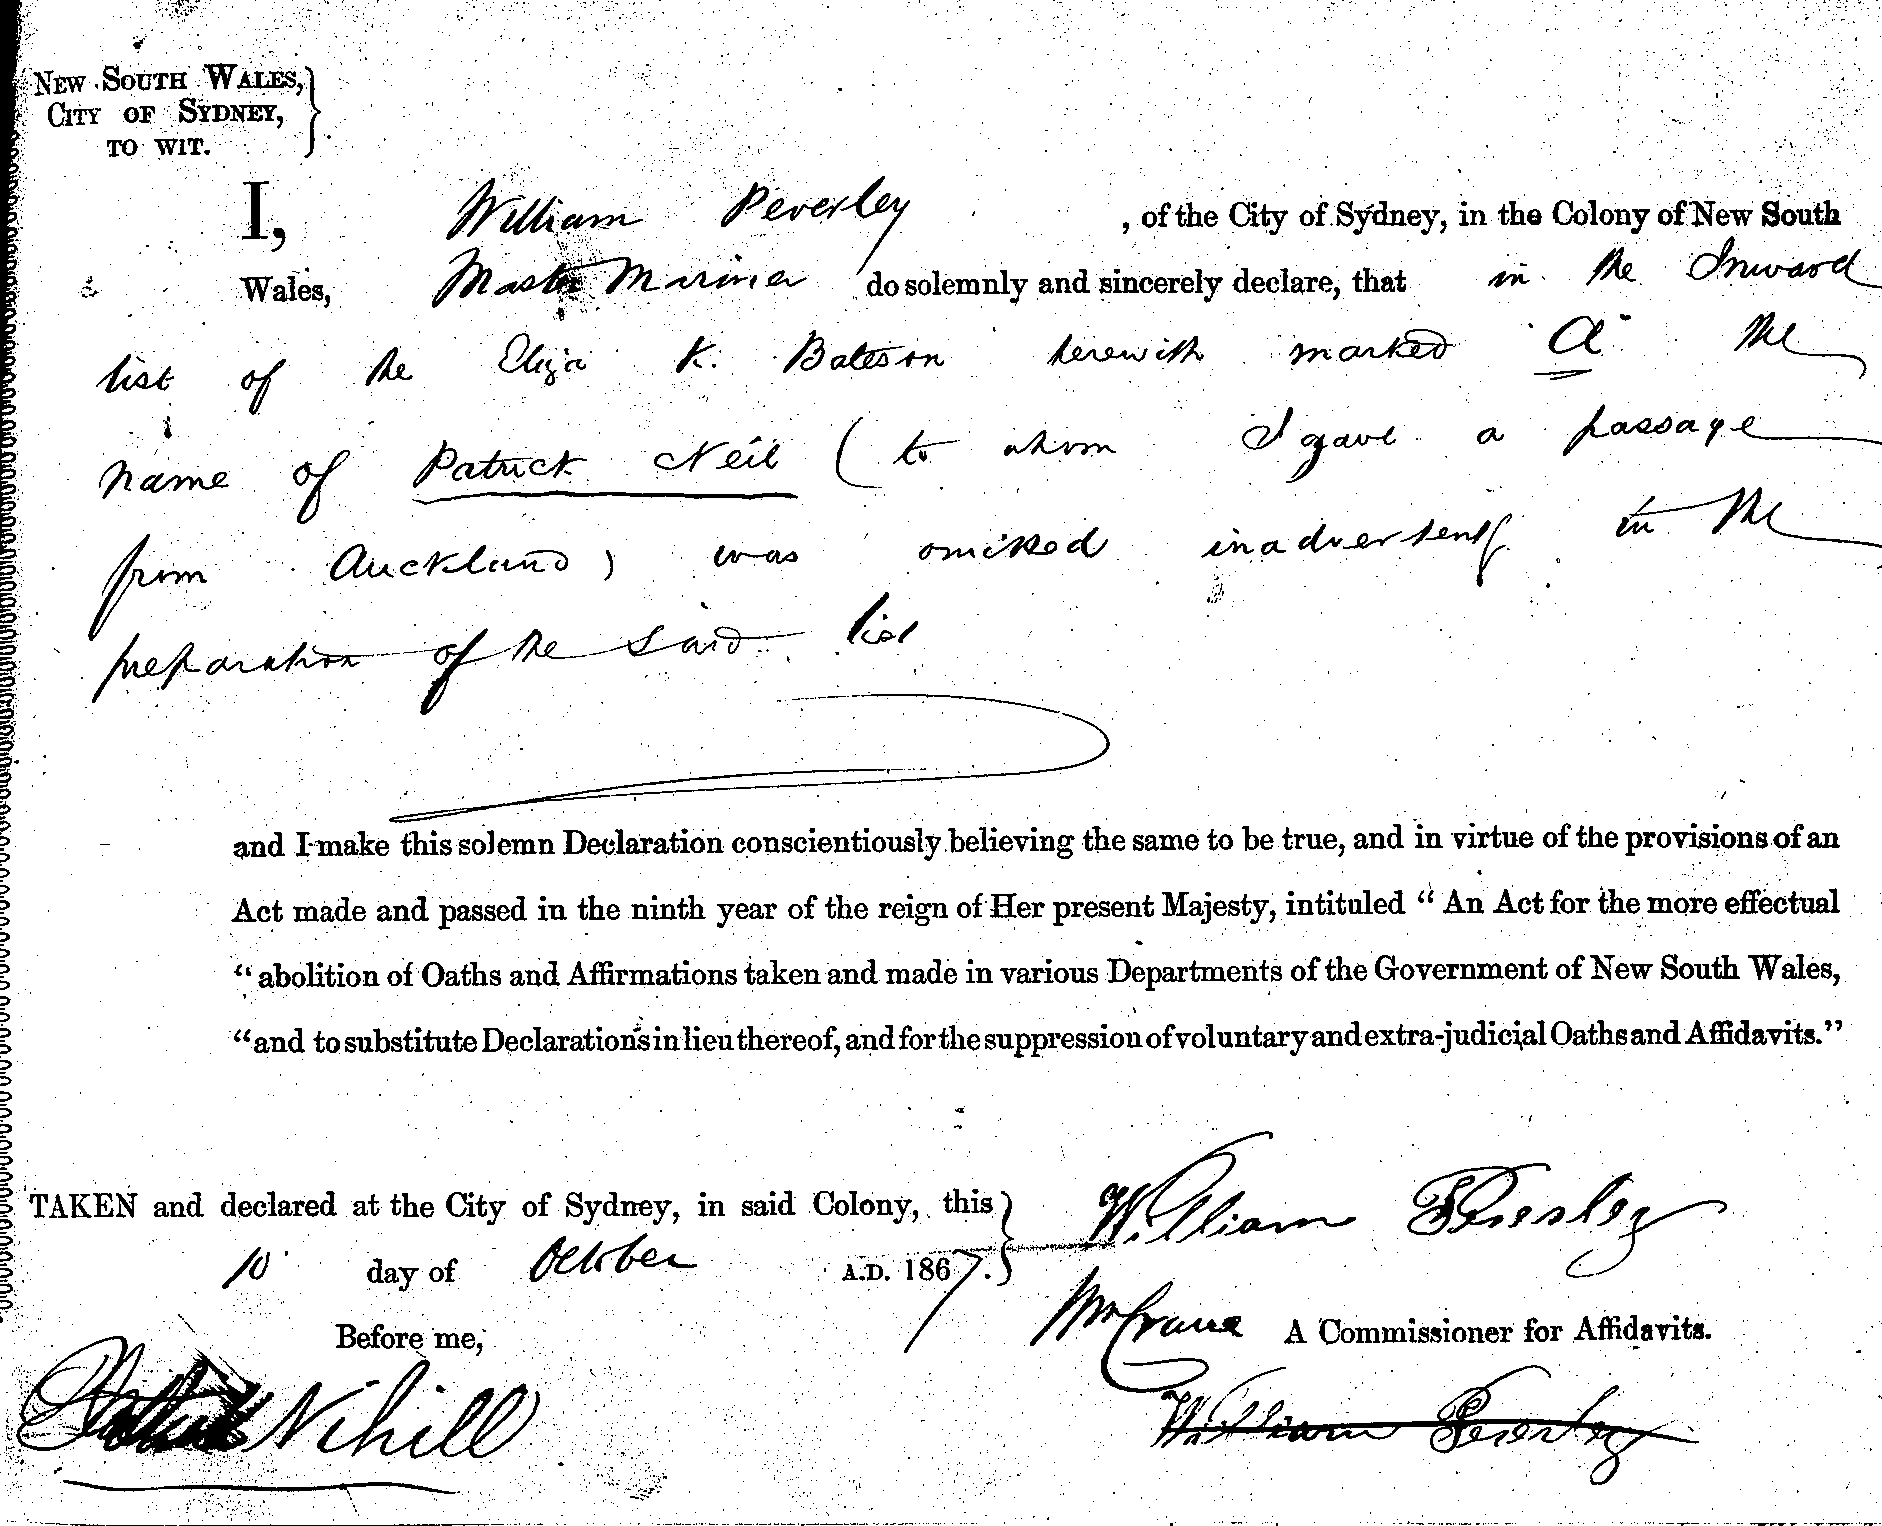 NEW SOUTH WALES,
CITY OF SYDNEY,
TO WIT.
I, William Peverley , of the City of Sydney, in the Colony of New South
Wales, Master Mariner do solemnly and sincerely declare, that in the Inward
list of the Eliza K. Bateson herewith marked A the
name of Patrick Neil ( to whom I gave a passage
from Auckland ) was omitted inadvertently in the
preparation of the said list
and I make this solemn Declaration conscientiously believing the same to be true, and in virtue of the provisions of an
Act made and passed in the ninth year of the reign of Her present Majesty, intituled “ An Act for the more effectual
“ abolition of Oaths and Affirmations taken and made in various Departments of the Government of New South Wales,
“and to substitute Declarations in lieu thereof, and for the suppression of voluntary and extra-judicial Oaths and Affidavits.”
TAKEN and declared at the City of Sydney, in said Colony, this William Peverley
10 day of October A.D. 1867.
Before me, Wm Crane A Commissioner for Affidavits.
Patrick Nihill William Peverley